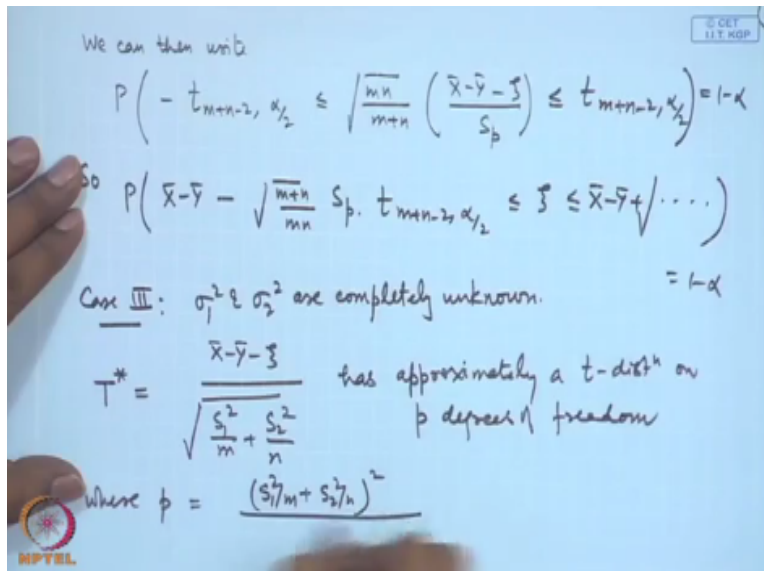 © CET
I.I.T. KGP
We can then write
P( - t_{m+n-2, α/2} ≤ √(mn/(m+n)) ( (X̄-Ȳ-ξ)/S_p ) ≤ t_{m+n-2, α/2} ) = 1-α
So P( X̄-Ȳ - √((m+n)/mn) S_p . t_{m+n-2, α/2} ≤ ξ ≤ X̄-Ȳ + √.... )
= 1-α
Case III : σ₁² & σ₂² are completely unknown.
T* = (X̄-Ȳ-ξ) / √(S₁²/m + S₂²/n) has approximately a t-distⁿ on
p degrees of freedom
where p = (S₁²/m + S₂²/n)²
NPTEL